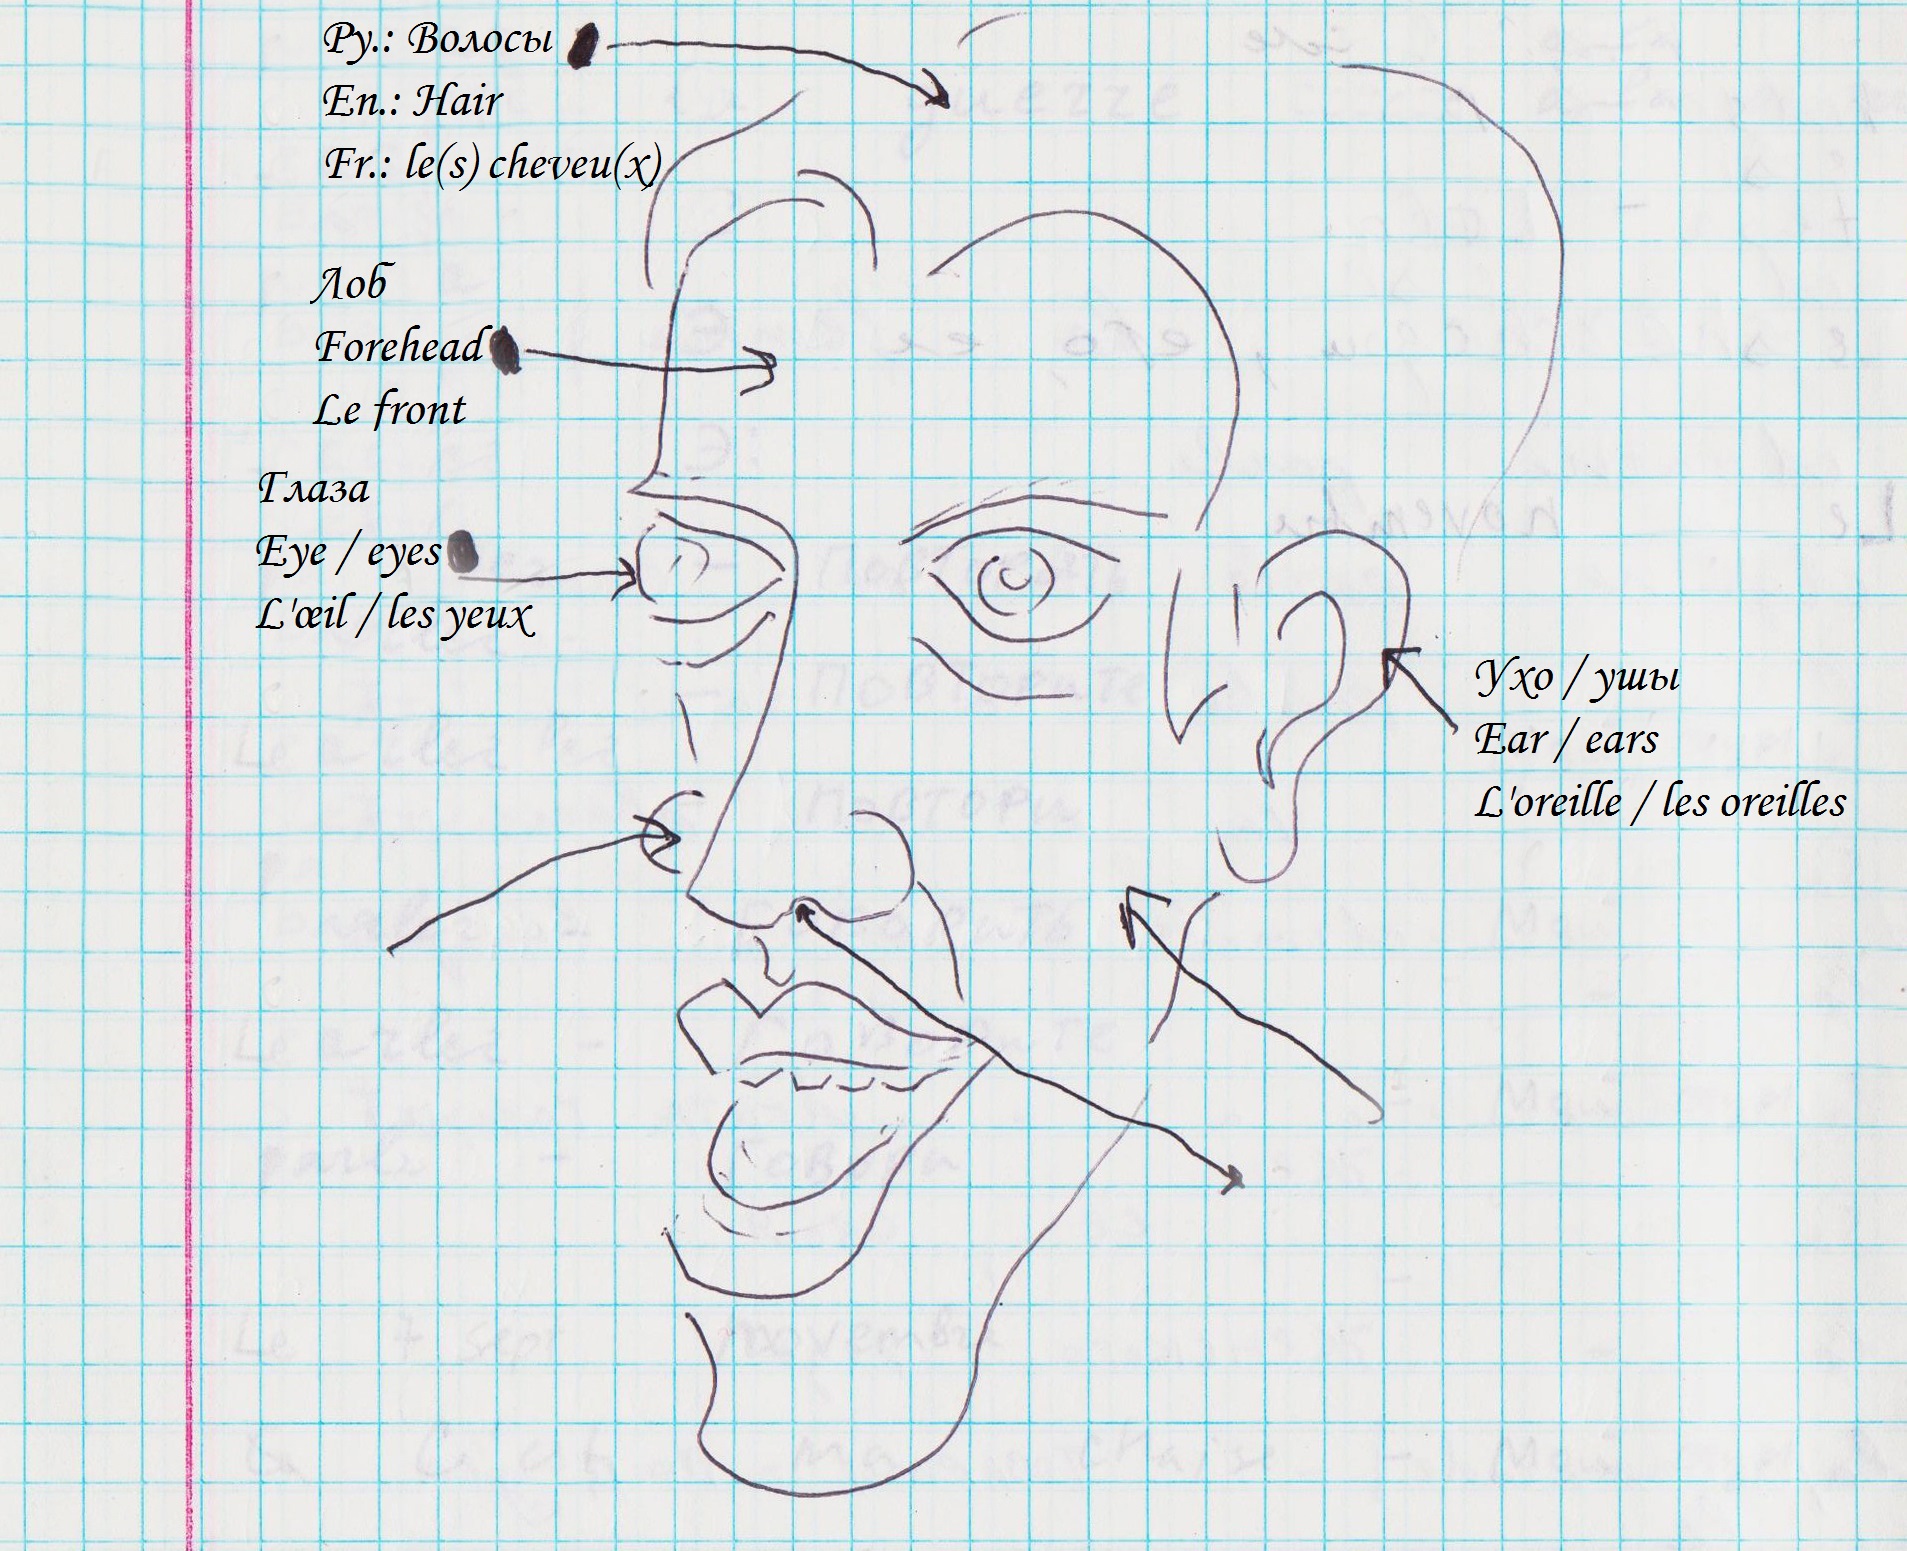 Ру.: Волосы
En.: Hair
Fr.: le(s) cheveu(x)
Лоб
Forehead
Le front
Глаза
Eye / eyes
L'œil / les yeux
Ухо / ушы
Ear / ears
L'oreille / les oreilles